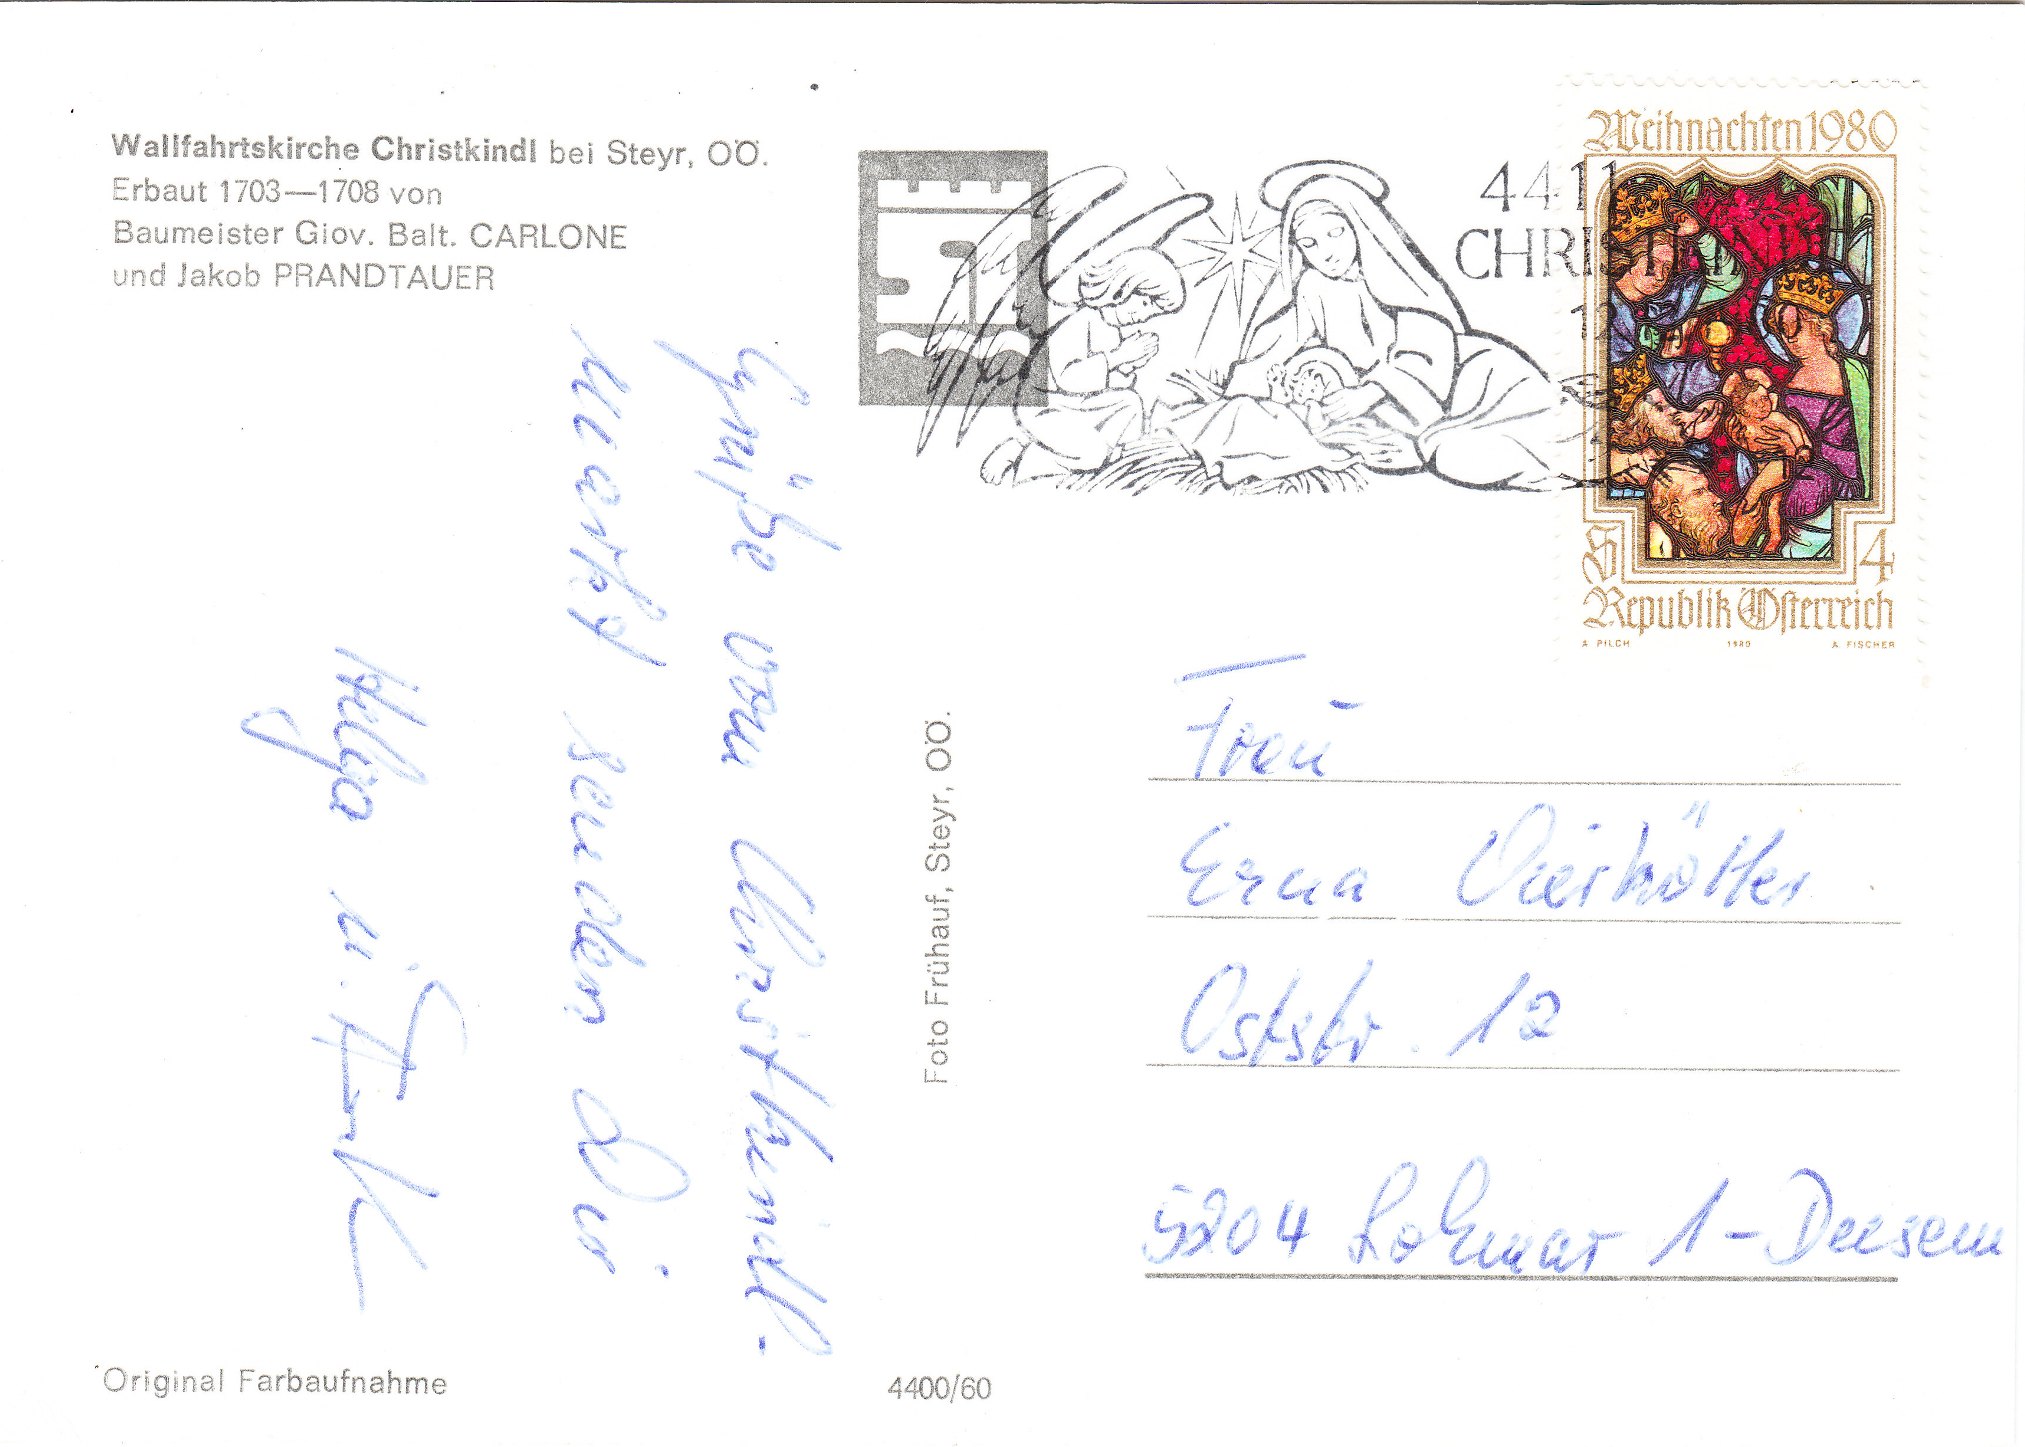 Wallfahrtskirche Christkindl bei Steyr, OÖ.
Erbaut 1703—1708 von
Baumeister Giov. Balt. CARLONE
und Jakob PRANDTAUER
Grüße vom Christkindl-
Markt senden Dir
Helga u. Frank
Foto Frühauf, Steyr, OÖ.
Original Farbaufnahme
4400/60
4411
CHRISTKINDL
Weihnachten 1980
S 4
Republik Österreich
A. PILCH 1980 A. FISCHER
Frau
Erna Vierkötter
Oststr. 12
5204 Lohmar 1 - Deesem